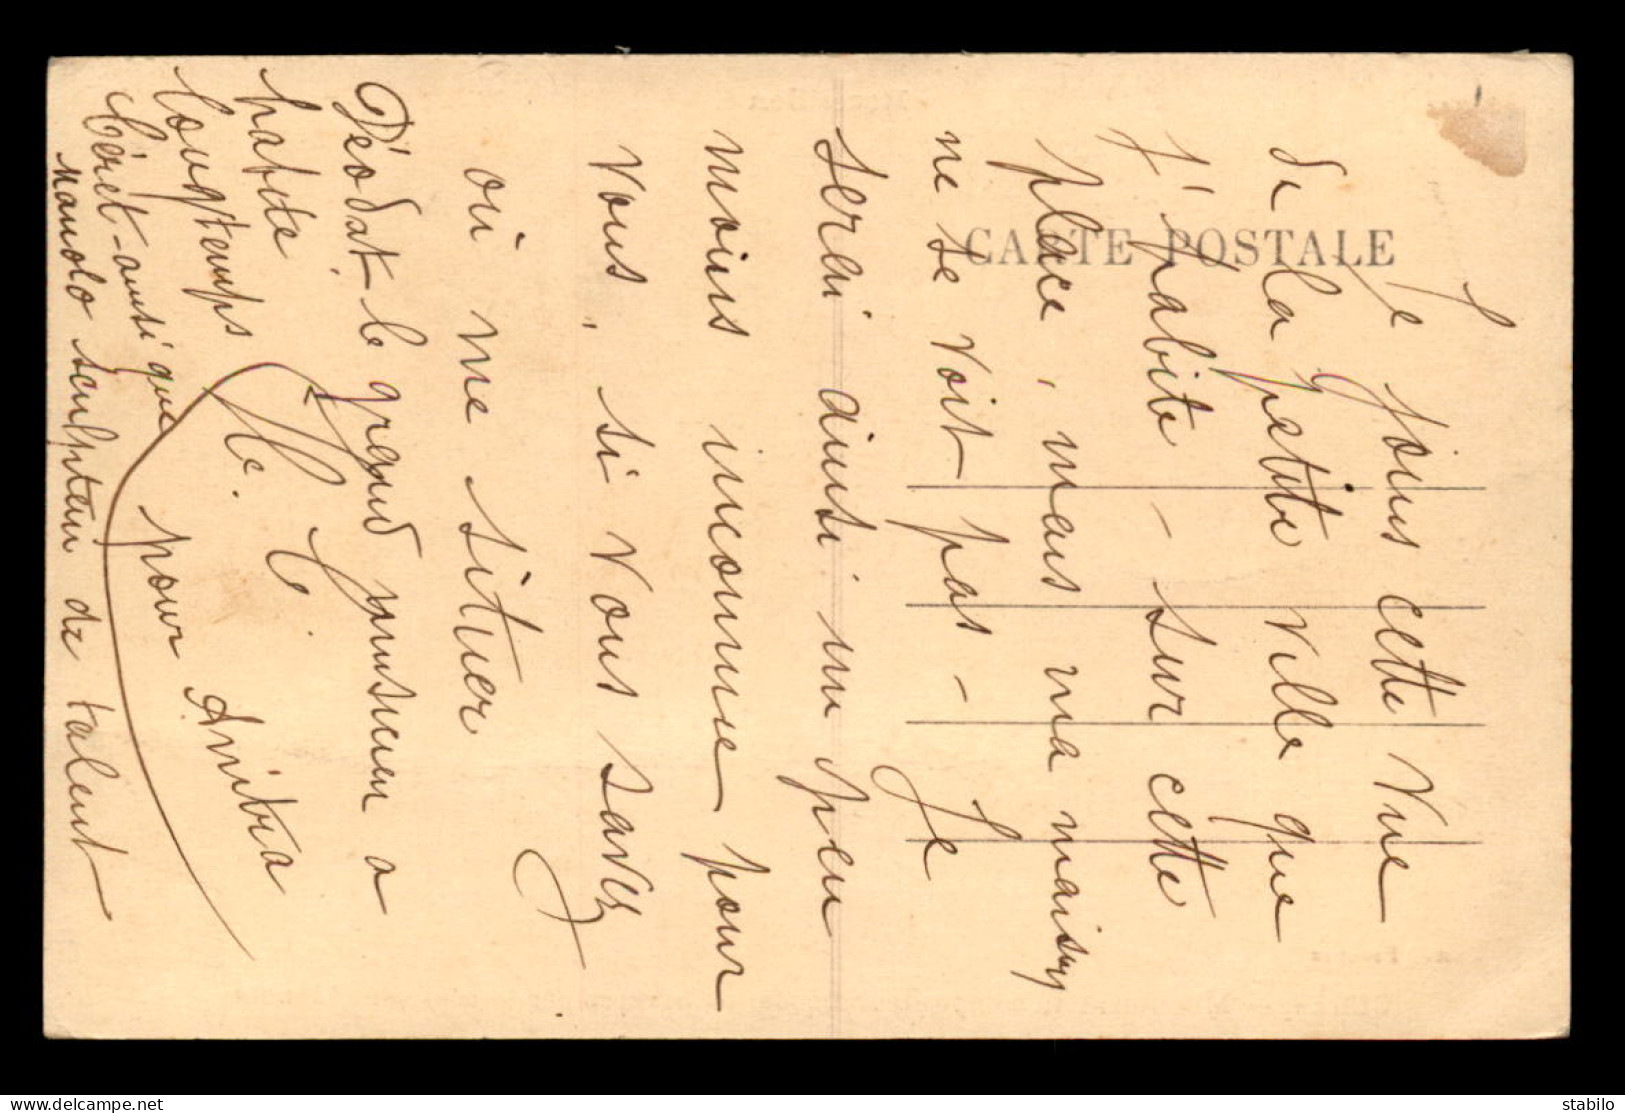 CARTE POSTALE
Je joins cette vue
de la petite ville que
j'habite - sur cette
place, mais ma maison
ne se voit pas - Je
serai ainsi un peu
moins inconnue pour
vous, si vous savez
où me situer
Déodat le grand musicien a
habité
longtemps
Céret - ainsi que
Manolo sculpteur de talent
pour
www.delcampe.net
stabilo